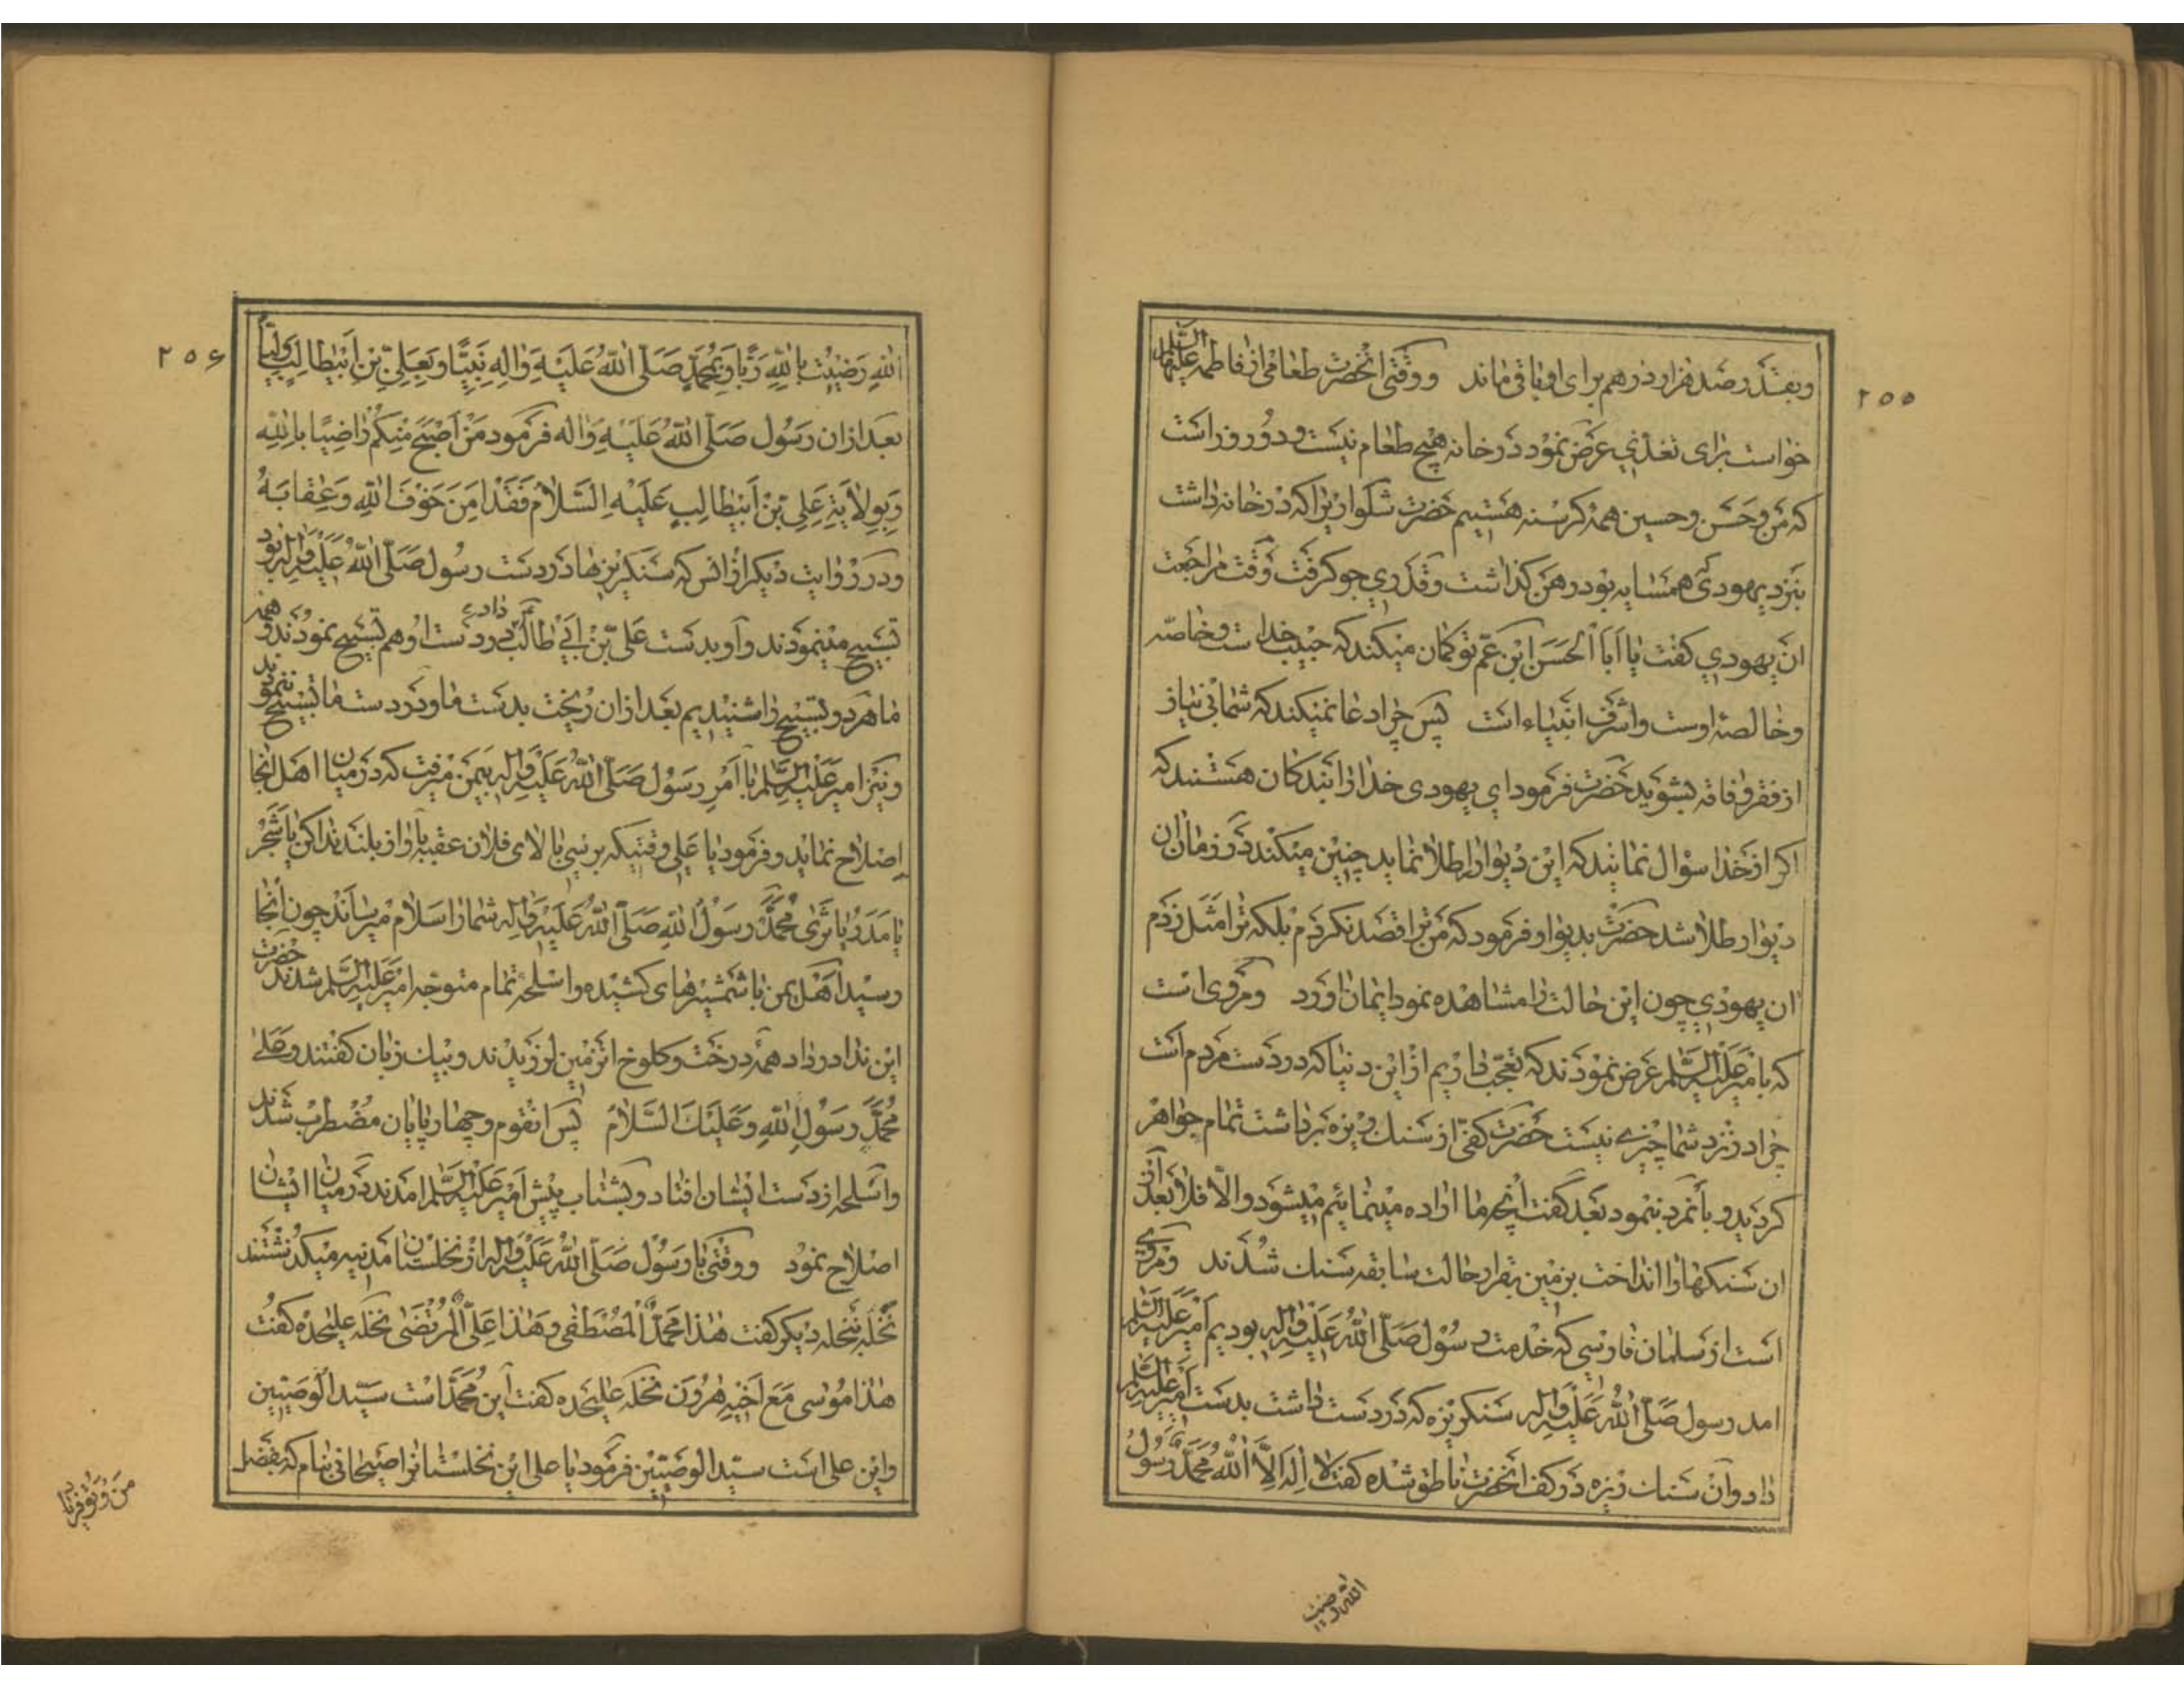 ۲۵۵
وبقدر صد هزار درهم برای او باقی ماند ووقتی انحضرت طعامی از فاطمه علیها السلام
خواست برای تغذی عرض نمود در خانه هیچ طعام نیست و دو روز است
که من وحسن وحسین همه کرسنه هستیم حضرت شلواریرا که در خانه داشت
بنزد یهودی همسایه بود رهن کذاشت وقدری جو کرفت وقت مراجعت
ان یهودی کفت یا ابا الحسن ابن عم تو کمان میکند که حبیب خدا است وخاصه
وخالصه اوست واشرف انبیاء است پس چرا دعا نمیکند که شما بی نیاز
از فقر وفاقه بشوید حضرت فرمود ای یهودی خدا را بندکان هستند که
اکر از خدا سؤال نمایند که این دیوار را طلا نماید چنین میکند در زمان ان
دیوار طلا شد حضرت بدیوار فرمود که من ترا قصد نکردم بلکه ترا مثل زدم
ان یهودی چون این حالت را مشاهده نمود ایمان اورد ومروی است
که بامیر علیه السلم عرض نمودند که تعجب داریم از این دنیا که در دست مردم است
چرا در نزد شما چیزی نیست حضرت کفی از سنک ریزه برداشت تمام جواهر
کردید و بانمرد بنمود بعد کفت انچه ما اراده مینمائیم میشود والا فلا بعد از
ان سنکها را انداخت بزمین بقرار حالت سابقه سنک شدند ومروی
است از سلمان فارسی که خدمت رسول صلی الله علیه واله بودیم امیر علیه السلم
امد رسول صلی الله علیه واله سنکریزه که در دست داشت بدست امیر علیه السلم
داد وان سنک ریزه در کف انحضرت ناطق شده کفت لا اله الا الله محمد رسول
الله رضیت
۲۵۶
الله رضیت بالله ربا وبمحمد صلی الله علیه واله نبیا وبعلی بن ابیطالب ولیا
بعد ازان رسول صلی الله علیه واله فرمود من اصبح منکم راضیا بالله
وبولایة علی بن ابیطالب علیه السلام فقد امن خوف الله وعقابه
ودر روایت دیکر از انس که سنکریزها در دست رسول صلی الله علیه واله بود
تسبیح مینمودند واو بدست علی بن ابی طالب داد در دست او هم تسبیح نمودند وهمه
ما هر دو تسبیح را شنیدیم بعد ازان ریخت بدست ما ودر دست ما تسبیح ننمودند
ونیز امیر علیه السلم با امر رسول صلی الله علیه واله بیمن میرفت که در میان اهل انجا
اصلاح نماید وفرمود یا علی وقتیکه برسی بالای فلان عقبه باواز بلند ندا کن یا شجر
یا مدر یا ثری محمد رسول الله صلی الله علیه واله شما را سلام میرساند چون انجا
رسید اهل یمن با شمشیرهای کشیده واسلحه تمام متوجه امیر علیه السلم شدند حضرت
این ندا در داد همه درخت وکلوخ انزمین لرزیدند وبیک زبان کفتند وعلی
محمد رسول الله وعلیک السلام پس انقوم وچهارپایان مضطرب شدند
واسلحه از دست ایشان افتاد وبشتاب پیش امیر علیه السلم امدند در میان ایشان
اصلاح نمود ووقتی با رسول صلی الله علیه واله از نخلستان مدنیه میکذشتند
نخله بنخله دیکر کفت هذا محمد المصطفی وهذا علی المرتضی نخله علیحده کفت
هذا موسی مع اخیه هرون نخله علیحده کفت این محمد است سید الوصیین
واین علی است سید الوصیین فرمود یا علی این نخلستانرا صیحانی بنام که بفضل
من وتو فریاد